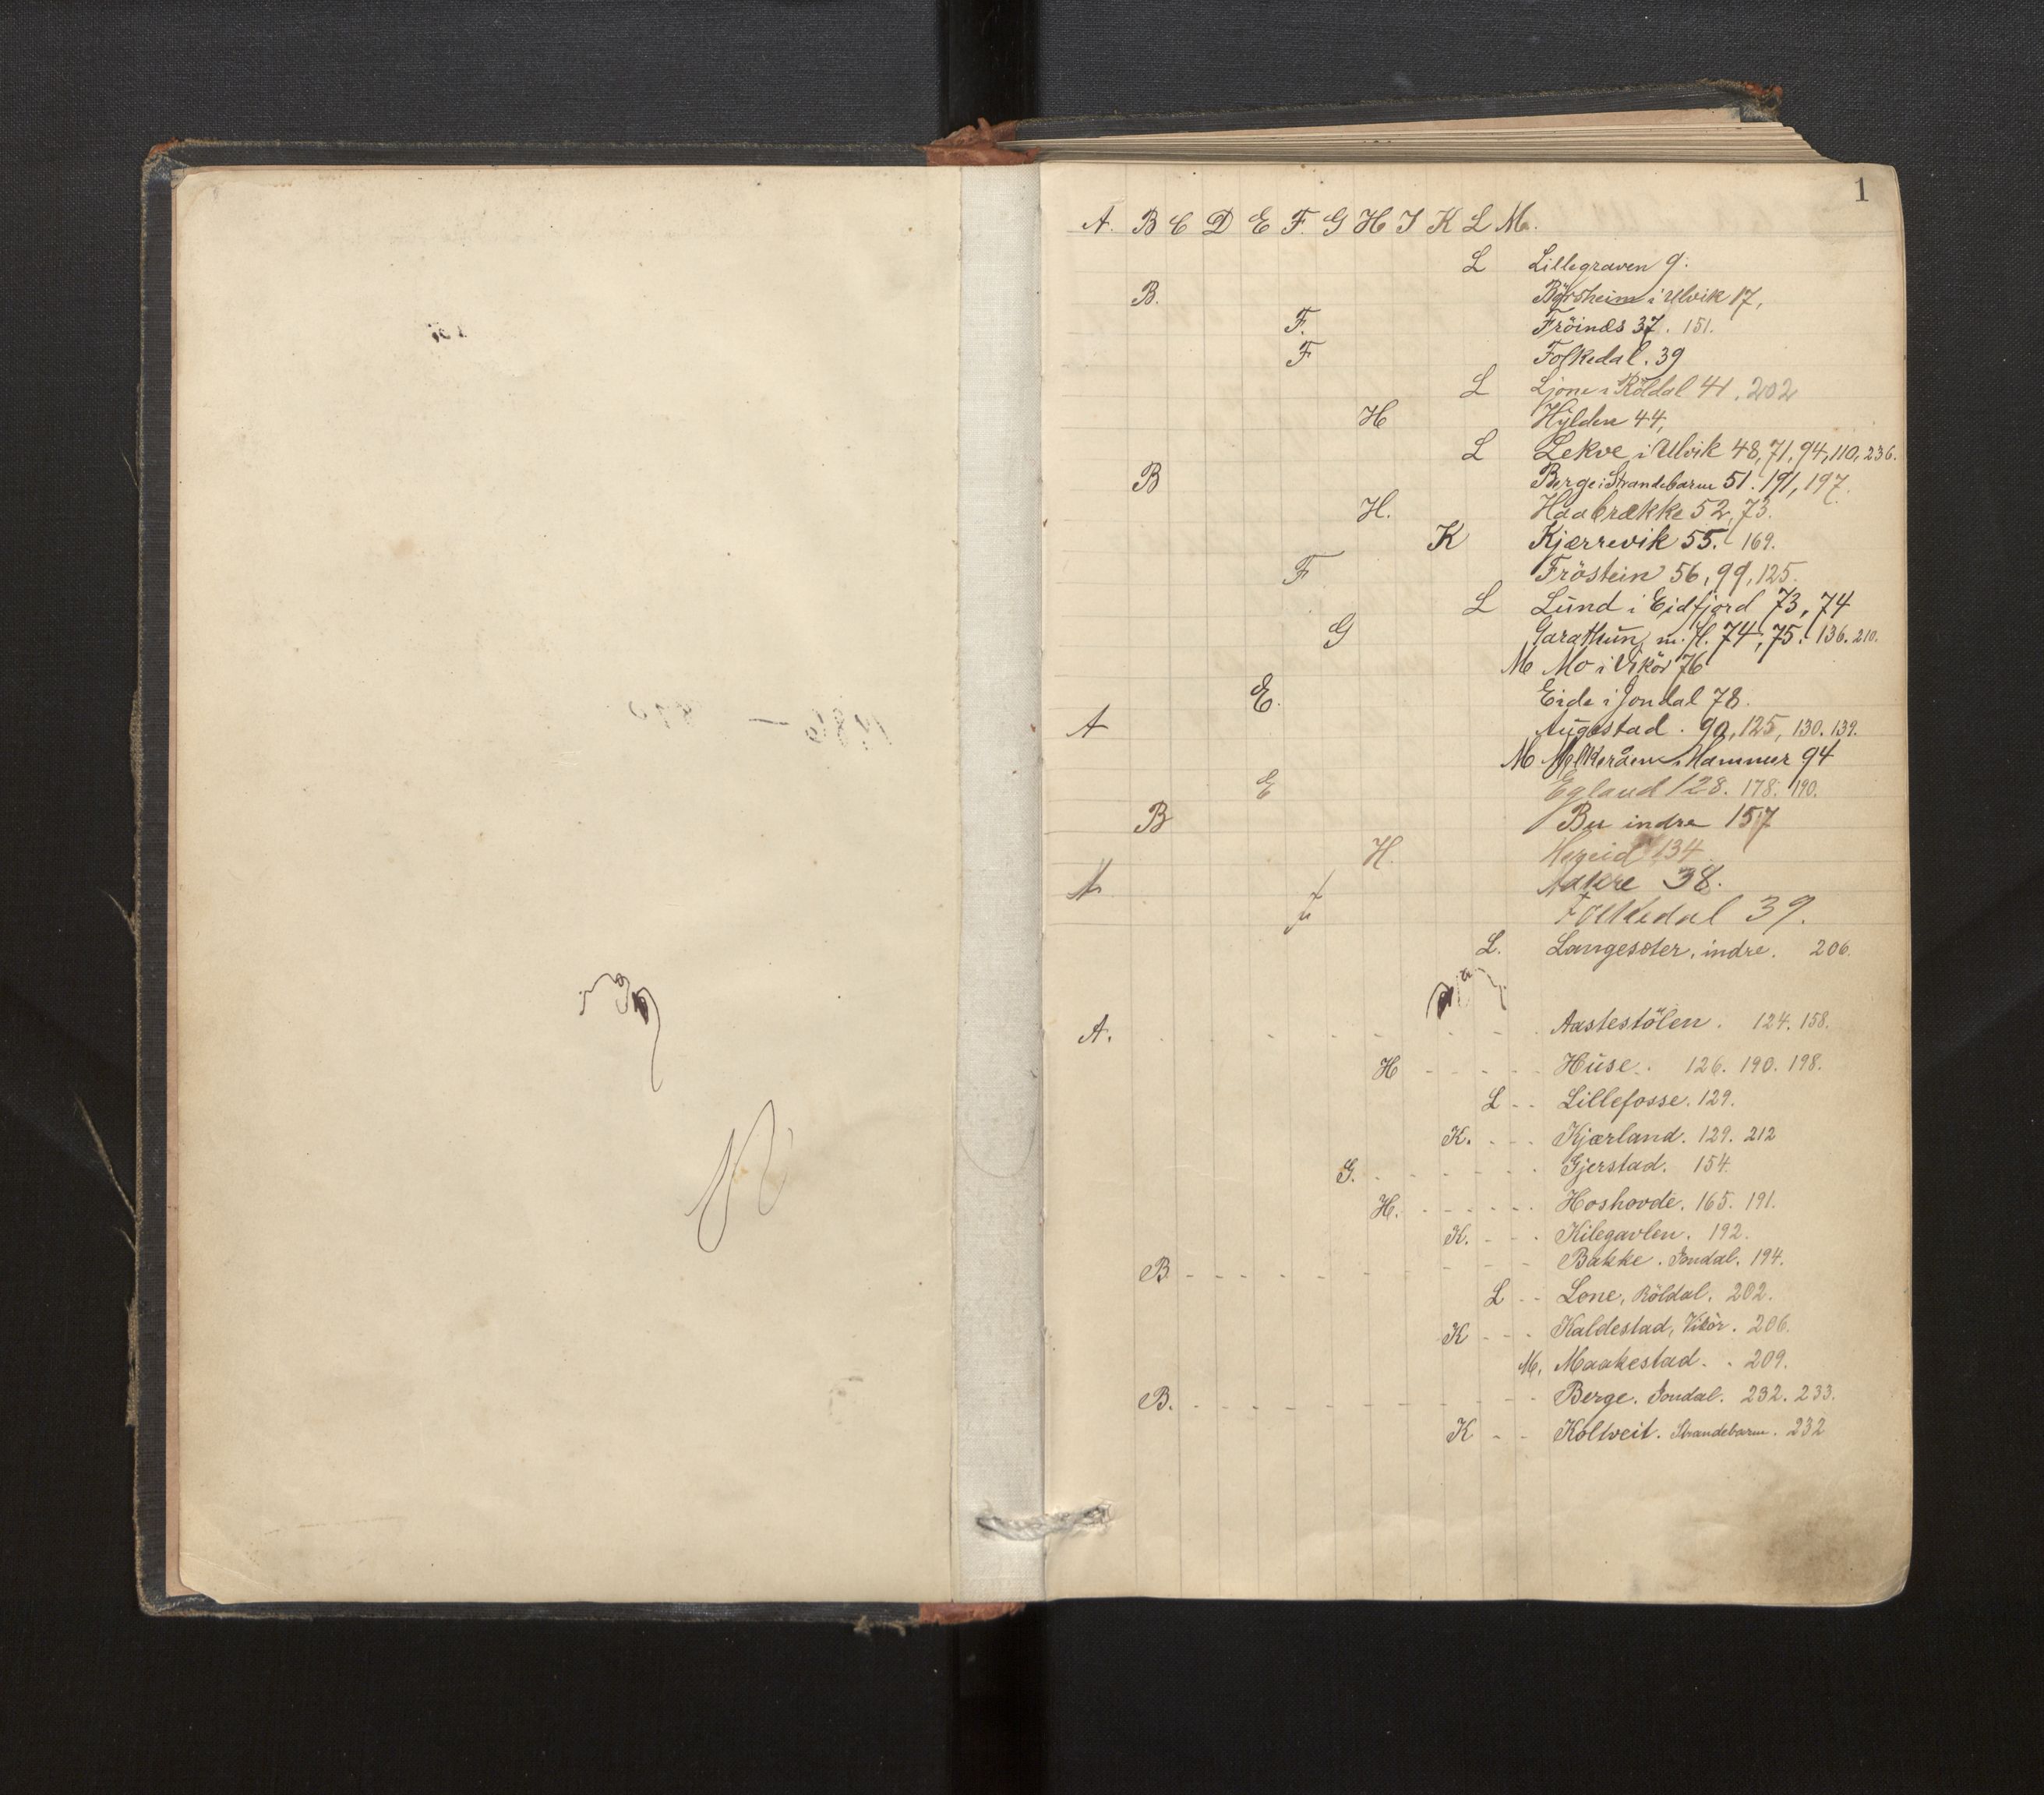 1
A. B C D E F. G H I K L M.
L Lillegraven 9.
B. Börsheim i Ulvik 17,
F. Fröinæs 37. 151.
F Folkedal. 39
L Ljone i Röldal 41. 202
H Hylden 44,
L Lekve i Ulvik 48, 71, 94, 110, 236.
B Berge i Strandebarm 51. 191, 197.
H. Haabrække 52, 73.
K Kjærrevik 55. 169.
F Fröstein 56, 99, 125.
L Lund i Eidfjord 73, 74
G Garathun, m. H. 74, 75. 136. 210.
M Mo i Vikör 76
E. Eide i Jondal 78.
A Augastad. 90, 125, 130. 139.
M Hammer 94
E Egland 128. 178. 190.
B Bu indre 157
H. Hereid 134
A Aakre 38.
F Folkedal 39.
L. Langesæter, indre. 206.
A. Aastestölen. 124. 158.
H Huse. 126. 190. 198.
L Lillefosse. 129.
K. Kjærland. 129. 212
G. Gjerstad. 154.
H. Hoshovde. 165. 191.
K. Kilegavlen. 192.
B Bakke. Jondal. 194.
L Lone, Röldal. 202.
K Kaldestad, Vikör. 206.
M. Maakestad. 209.
B. Berge. Jondal. 232. 233.
K Koltveit. Strandebarm. 232